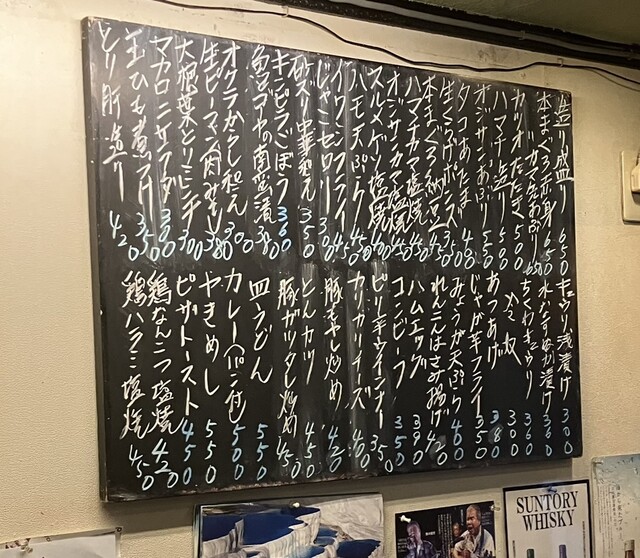 造り盛り 650
本まぐろ赤身 650
カツオたたき 500
ハマチ造り 500
オジサンあぶり 500
本まぐろ納豆
ハマチカマ塩焼 450
オジサンカマ塩焼 450
スルメゲソ塩焼 400
ハモ天ぷら 450
イワシフライ 450
じゃこセロリー 300
砂ズリ中華和え 350
キンピラごぼう 360
魚とゴーヤの南蛮漬 380
オクラからし和え 300
生ピーマン肉みそ 380
大根葉とりミンチ 300
マカロニサラダ 300
玉ひも煮つけ 350
とり肝造り 420
キュウリ浅漬け 300
水なすぬか漬け 360
ちくわキュウリ 360
冷奴 300
あつあげ 380
じゃが芋フライ 350
みょうが天ぷら 400
れんこんはさみ揚げ
ハムエッグ 390
コンビーフ 350
ピリ辛ウインナー 350
カリカリチーズ 400
豚もやし炒め 420
とんカツ 450
豚ガツタレ炒め 450
皿うどん 550
カレー(パン付) 500
やきめし 550
ピザトースト 450
鶏なんこつ塩焼 420
鶏ハラミ塩焼 450
SUNTORY
WHISKY